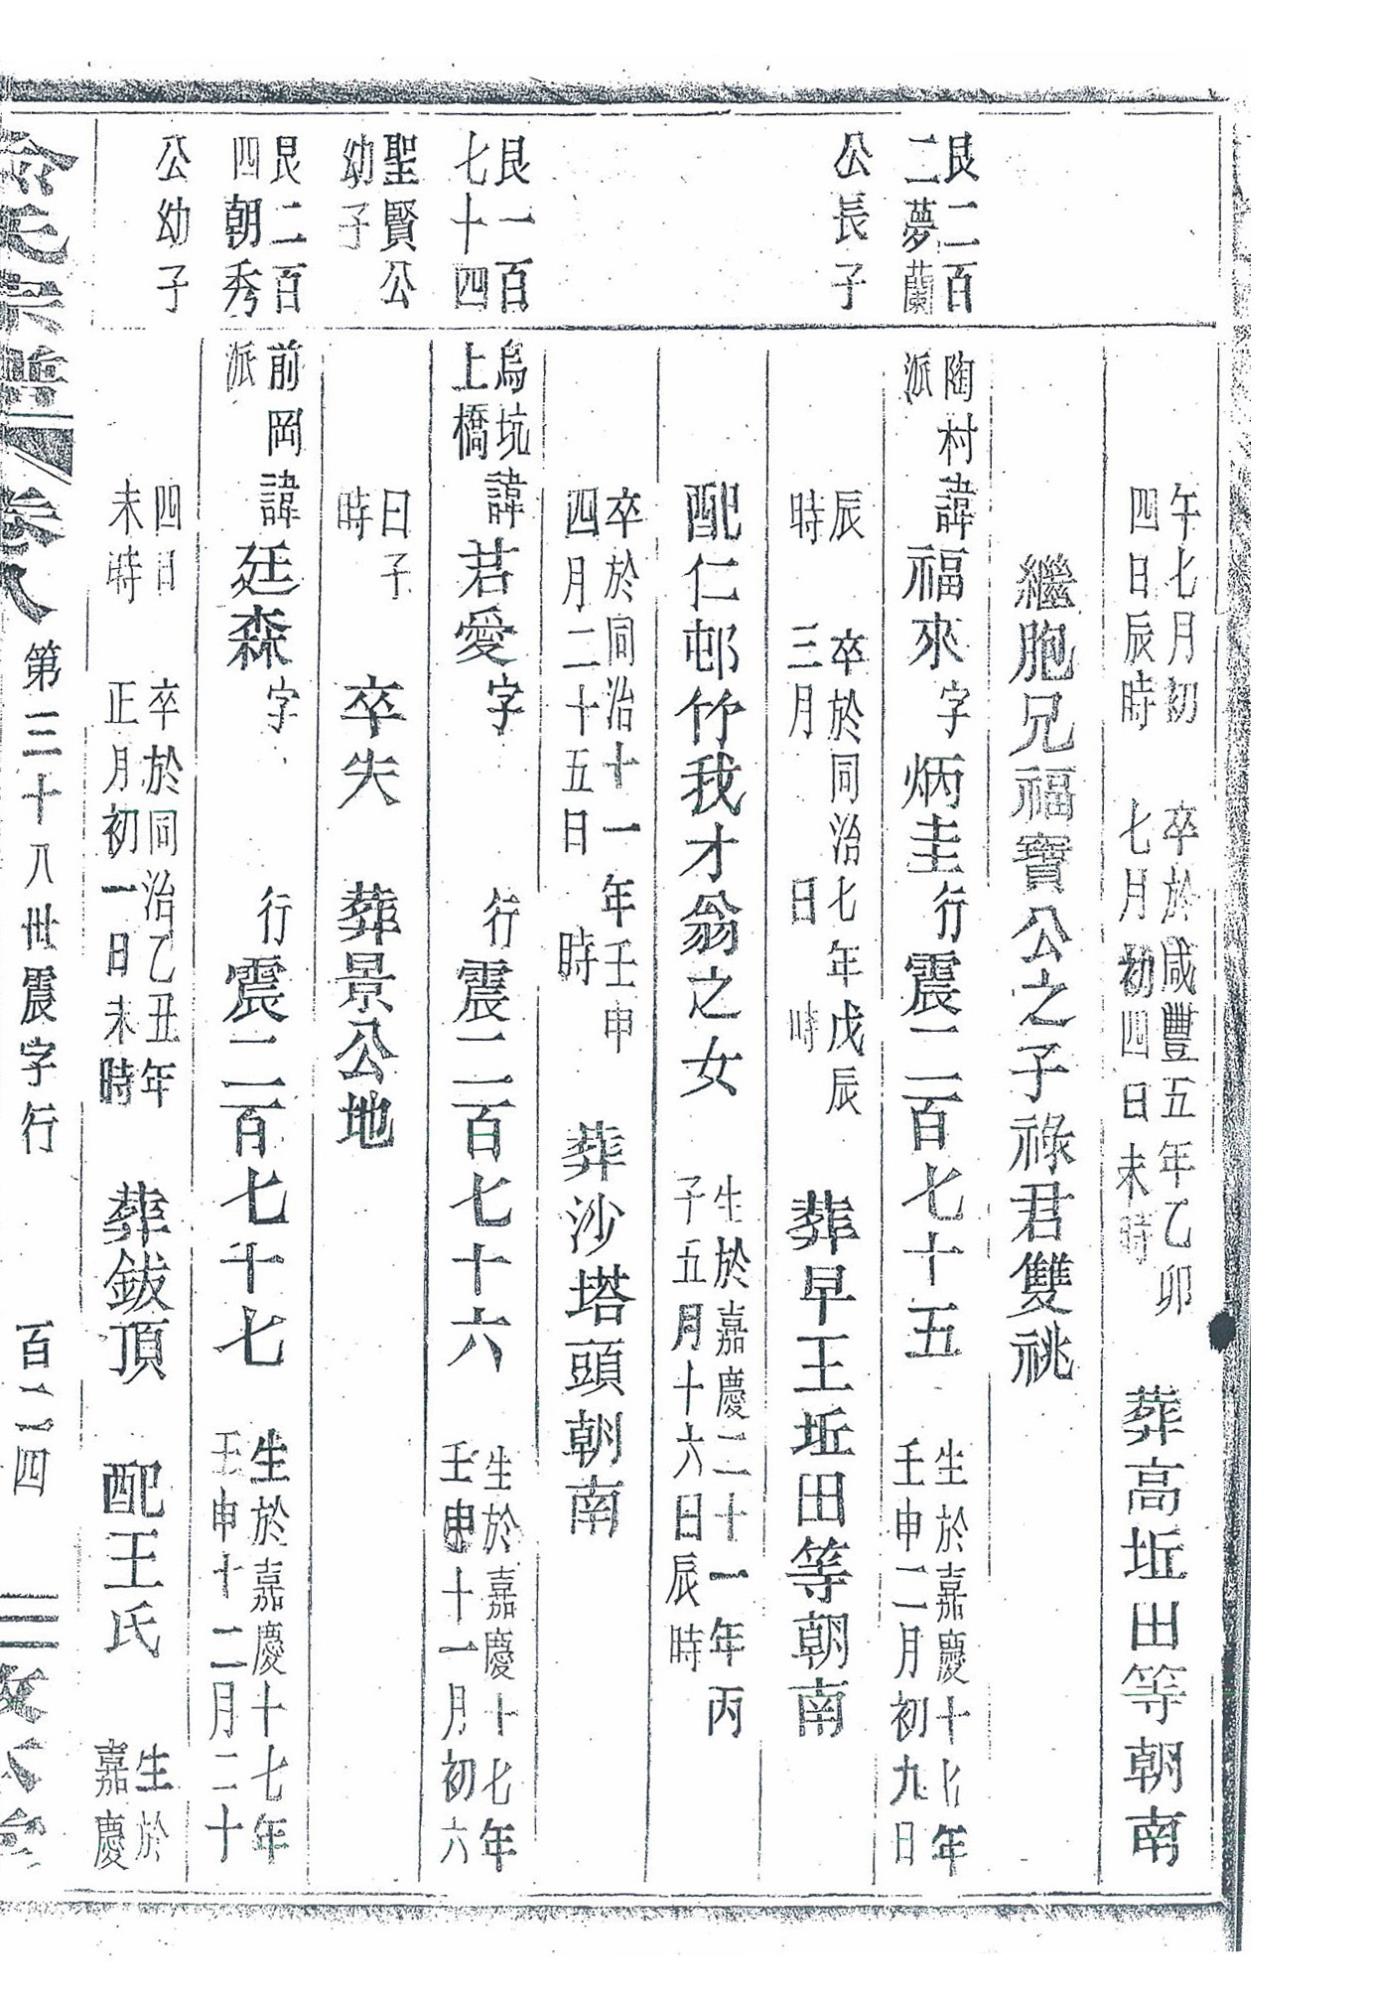 午七月初
四日辰時
卒於咸豐五年乙卯
七月初四日未時
葬高坵田等朝南
繼胞兄福寶公之子祿君雙祧
艮二百
二夢蘭
陶村
派
諱福來字炳圭行震二百七十五
生於嘉慶十七年
壬申二月初九日
公長子
辰
時
卒於同治七年戊辰
三月 日 時
葬早王坵田等朝南
配仁邨竹我才翁之女
生於嘉慶二十一年丙
子五月十六日辰時
卒於同治十一年壬申
四月二十五日 時
葬沙塔頭朝南
艮一百
七十四
烏坑
上橋
諱君愛字 行震二百七十六
生於嘉慶十七年
壬申十一月初六
聖賢公
幼子
日子
時
卒失 葬景公地
艮二百
四朝秀
前岡
派
諱廷森字 行震二百七十七
生於嘉慶十七年
壬申十二月二十
公幼子
四日
未時
卒於同治乙丑年
正月初一日未時
葬鈸頂 配王氏
生於
嘉慶
氏宗譜 卷八 第三十八卅震字行 百二四